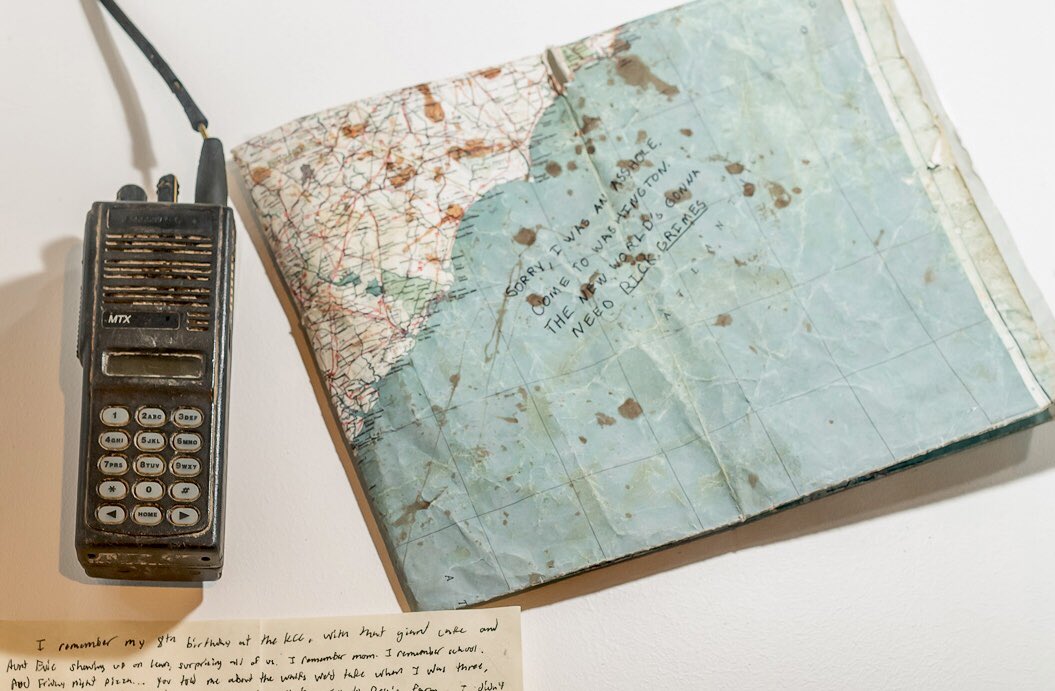 MTX
1
2ABC
3DEF
4GHI
5JKL
6MNO
7PRS
8TUV
9WXY
*
0
#
◄
HOME
►
SORRY, I WAS AN ASSHOLE.
COME TO WASHINGTON.
THE NEW WORLD'S GONNA
NEED RICK GRIMES
A T L A N
I remember my 8th birthday at the KCC, with that giant cake and
Aunt Evie showing up on leave, surprising all of us. I remember mom. I remember school.
And Friday night pizza... You told me about the walks we'd take when I was three,
Farm. I didn't